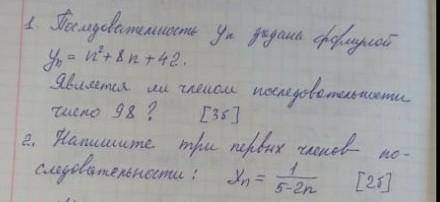 1. Последовательность yn задана формулой
yn = n² + 8n + 42.
Является ли членом последовательности
число 98? [3б]
2. Напишите три первых членов по-
следовательности: xn = 1/(5-2n) [2б]